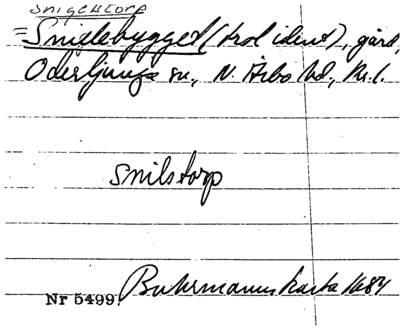 SNIGELTORP
= Snielebygget (trol. ident), gård,
Oderljunga sn, N. Åsbo hd, Kr. l.
Snilstorp
Nr 5499. Buhrmanns karta 1684